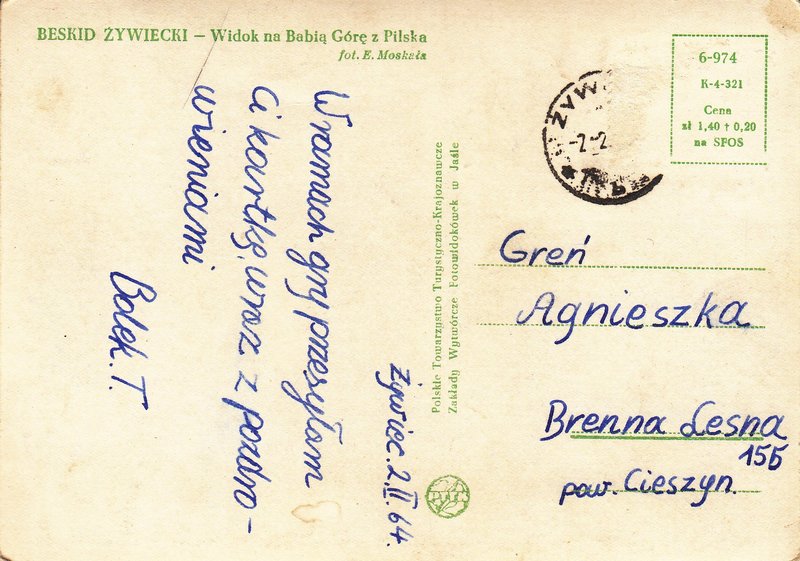 BESKID ŻYWIECKI — Widok na Babią Górę z Pilska
fot. E. Moskała
Żywiec. 2.II.64.
W ramach gry przesyłam
Ci kartkę wraz z pozdro-
wieniami
Bolek. T.
Polskie Towarzystwo Turystyczno-Krajoznawcze
Zakłady Wytwórcze Fotowidokówek w Jaśle
PTTK
6-974
K-4-321
Cena
zł 1,40 + 0,20
na SFOS
ŻYW
-2-2
Greń
Agnieszka
Brenna Leśna
155
pow. Cieszyn.